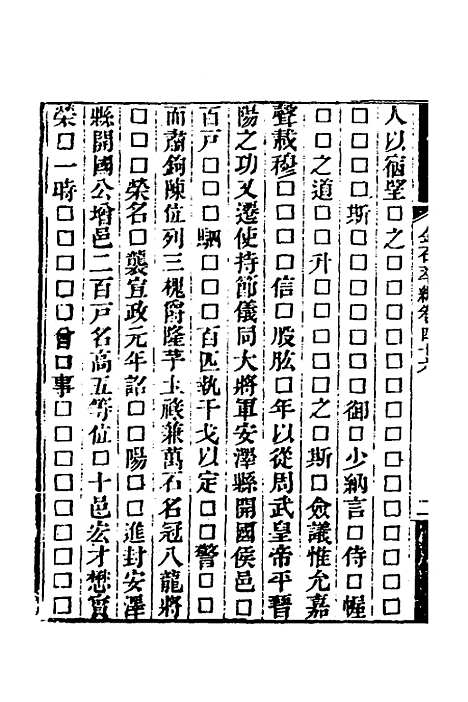 金石萃編卷四十六 二
人以宿望□之□□□□□□□□□□□□□□□
□□□□斯□□□□□□□御□少納言□侍□幄
□□之道□□升□□□□□之□斯□僉議惟允嘉
聲載穆□□□□信□股肱□年以從周武皇帝平晉
陽之功又遷使持節儀同大將軍安澤縣開國侯邑□
百戶□□□駟□□□百匹執干戈以定□□警□□
而肅鉤陳位列三槐爵隆芋土祿兼萬石名冠八龍將
□□□榮名□襲宣政元年詔□□陽□□進封安澤
縣開國公增邑二百戶名高五等位□十邑宏才懋賞
榮□一時□□□□□曾□事□□□□□□□□□